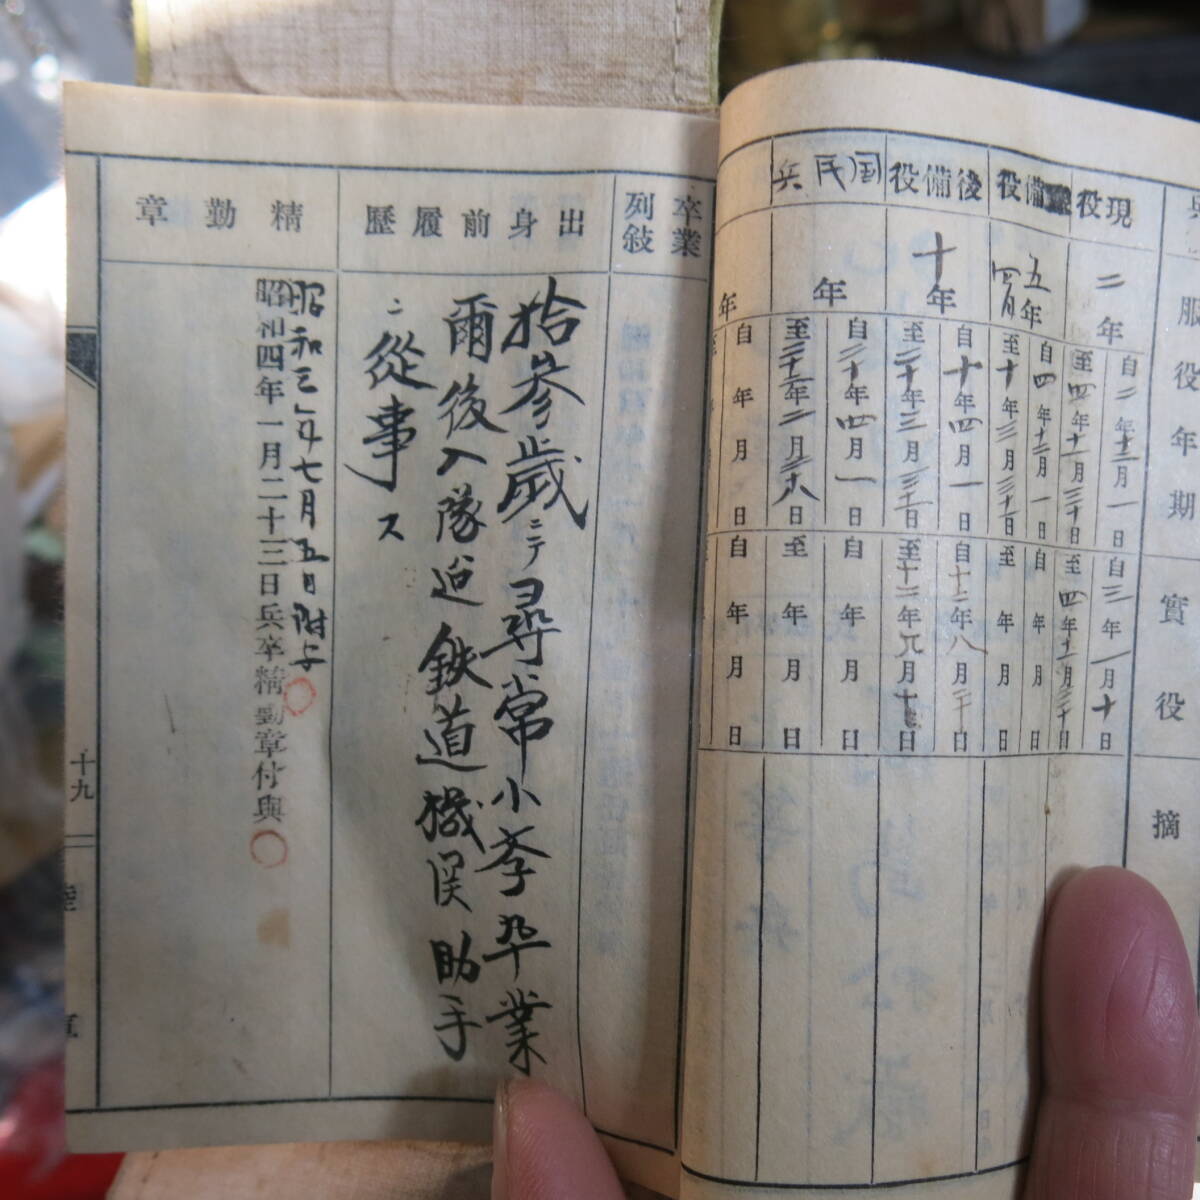 服役年期
實役
摘
現役
二年
自二年十二月一日
至四年十一月三十日
自三年一月十日
至四年十一月三十日
備役
五年四月
自四年十二月一日
至十年三月三十一日
自年月日
至年月日
後備役
十年
自十年四月一日
至二十年三月三十一日
自十二年八月二十日
国民兵
年
自二十年四月一日
自年月日
至年月日
年
自年月日
自年月日
卒業
列敍
出身前履歷
拾參歳ニテ尋常小學卒業
爾後入隊迄鉄道機関助手
ニ從事ス
精勤章
昭和三年七月五日附与
昭和四年一月二十三日兵卒精勤章付與
十九